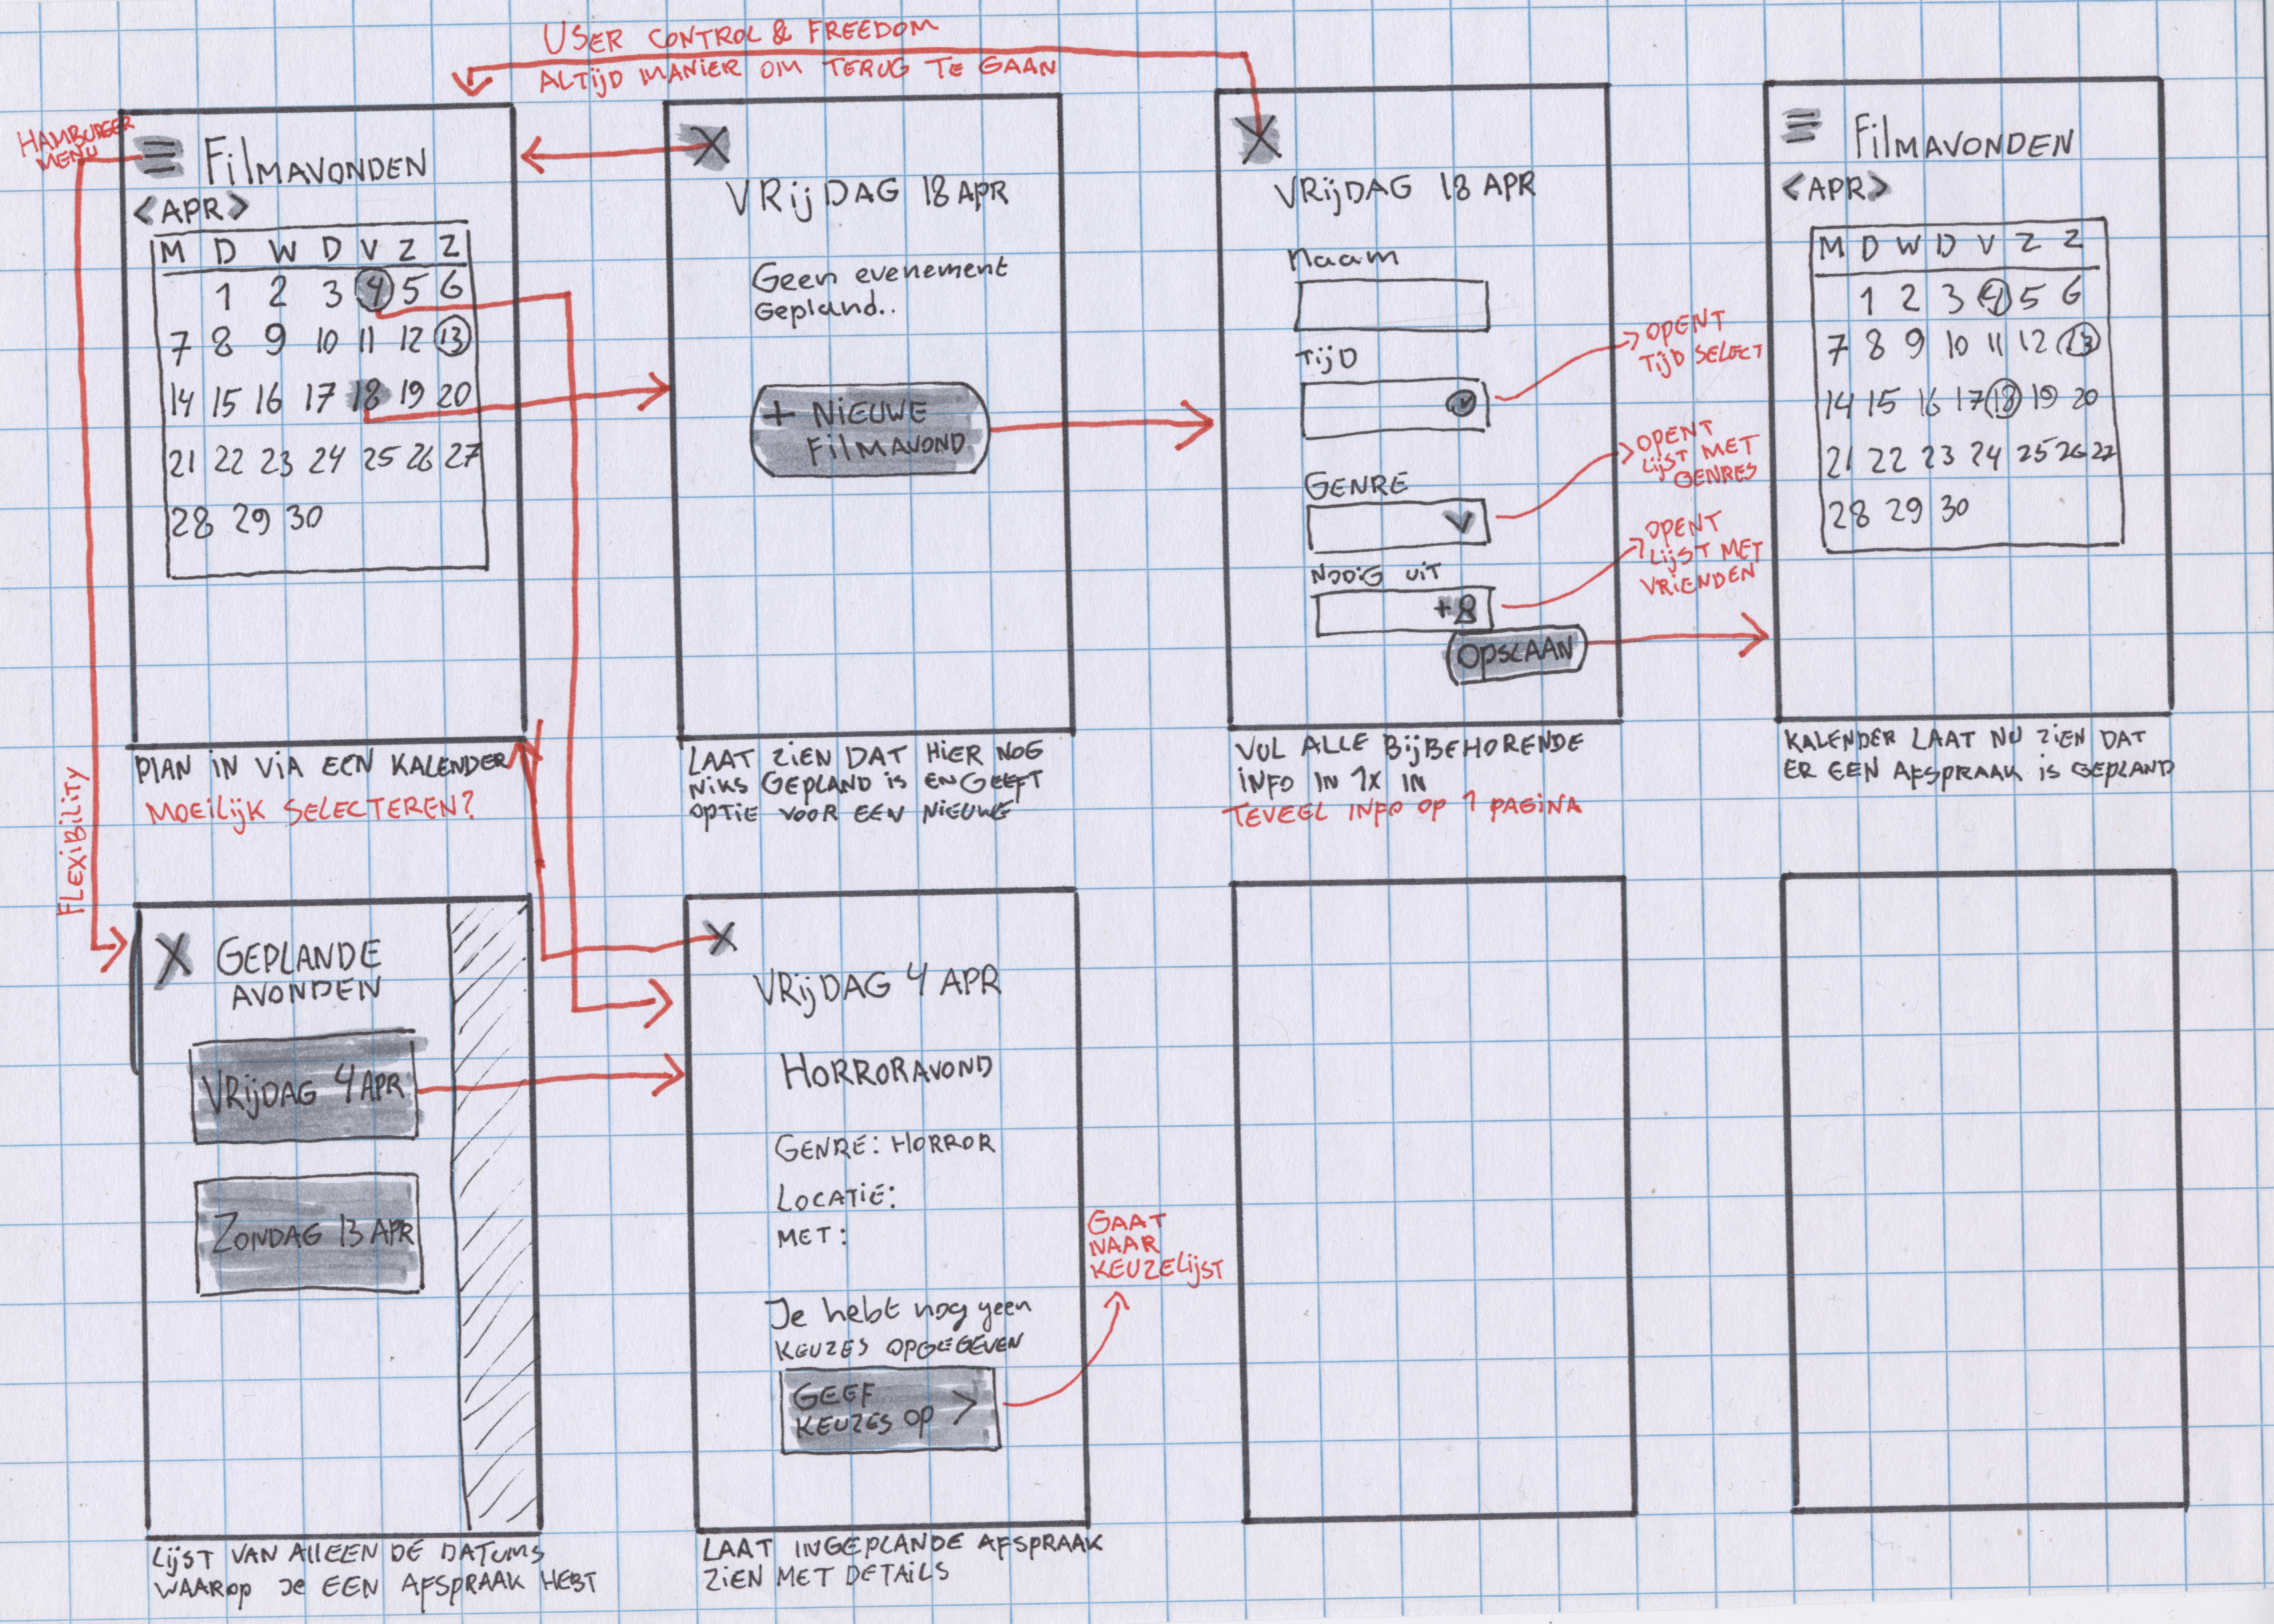 USER CONTROL & FREEDOM
ALTIJD MANIER OM TERUG TE GAAN
HAMBURGER
MENU
FILMAVONDEN
<APR>
M D W D V Z Z
1 2 3 4 5 6
7 8 9 10 11 12 13
14 15 16 17 18 19 20
21 22 23 24 25 26 27
28 29 30
PLAN IN VIA EEN KALENDER
MOEILIJK SELECTEREN?
FLEXIBILITY
X
VRIJDAG 18 APR
Geen evenement
Gepland..
+ NIEUWE
FILMAVOND
LAAT ZIEN DAT HIER NOG
NIKS GEPLAND IS EN GEEFT
OPTIE VOOR EEN NIEUWE
X
VRIJDAG 18 APR
Naam
TIJD
GENRE
NODIG UIT
+8
OPSLAAN
OPENT
TIJD SELECT
OPENT
LIJST MET
GENRES
OPENT
LIJST MET
VRIENDEN
VUL ALLE BIJBEHORENDE
INFO IN 1X IN
TEVEEL INFO OP 1 PAGINA
FILMAVONDEN
<APR>
M D W D V Z Z
1 2 3 4 5 6
7 8 9 10 11 12 13
14 15 16 17 18 19 20
21 22 23 24 25 26 27
28 29 30
KALENDER LAAT NU ZIEN DAT
ER EEN AFSPRAAK IS GEPLAND
X GEPLANDE
AVONDEN
VRIJDAG 4 APR
ZONDAG 13 APR
LIJST VAN ALLEEN DE DATUMS
WAAROP JE EEN AFSPRAAK HEBT
X
VRIJDAG 4 APR
HORRORAVOND
GENRE: HORROR
LOCATIE:
MET:
Je hebt nog geen
KEUZES OPGEGEVEN
GEEF
KEUZES OP >
GAAT
NAAR
KEUZELIJST
LAAT INGEPLANDE AFSPRAAK
ZIEN MET DETAILS